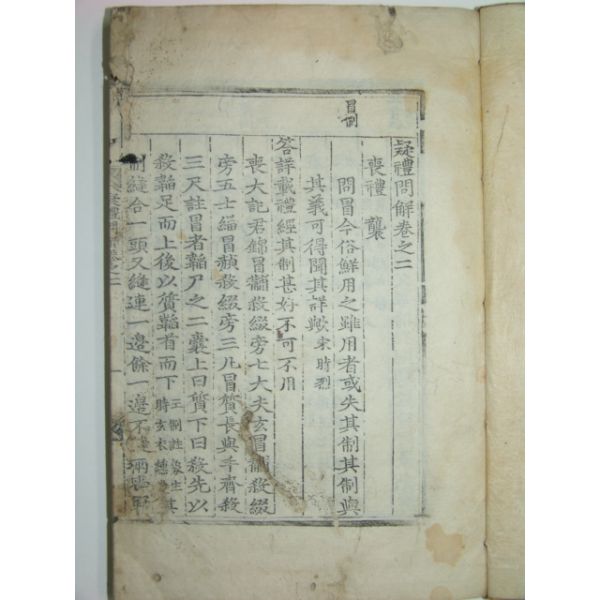 疑禮問解卷之二
喪禮 襲
問冒今俗鮮用之雖用者或失其制其制與
其義可得聞其詳歟 宋時烈
冒制
答詳載禮經其制甚好不可不用
喪大記君錦冒黼殺綴旁七大夫玄冒黼殺綴
旁五士緇冒赬殺綴旁三凡冒質長與手齊殺
三尺註冒者韜尸之二囊上曰質下曰殺先以
殺韜足而上後以質韜首而下
制縫合一頭又縫連一邊餘一邊不
疑禮問解卷之二